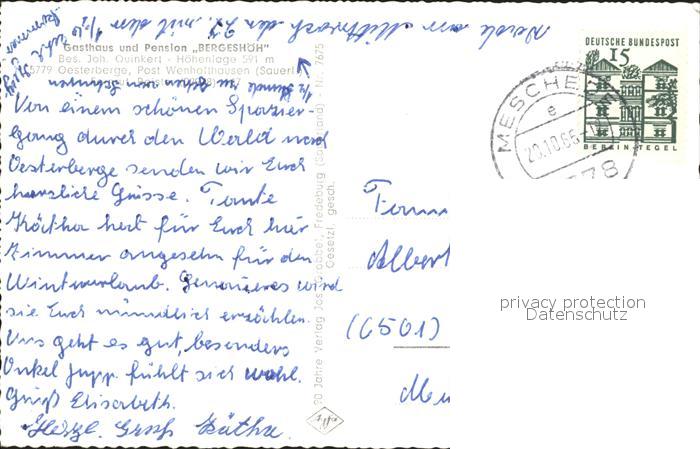 Werde am Mittwoch den 27. mit dem
Gasthaus und Pension „BERGESHÖH"
Bes. Joh. Quinkert - Höhenlage 591 m
5779 Oesterberge, Post Wenholthausen (Sauerl
Von einem schönen Spazier-
gang durch den Wald nach
Oesterberge senden wir Euch
herzliche Grüsse. Tante
Käthe hat für Euch hier
Zimmer angesehn für den
Winterurlaub. Genaueres wird
sie Euch mündlich erzählen.
Uns geht es gut, besonders
Onkel Jupp fühlt sich wohl.
Gruß Elisabeth.
Herzl. Gruß Käthe.
20 Jahre Verlag Jos. Grobbel, Fredeburg (Sauerland) Nr. 7675
Gesetzl. gesch.
Agfa
DEUTSCHE BUNDESPOST
15
BERLIN-TEGEL
MESCHEDE
e
20.10.65
578
Fam
Albert
(6501)
privacy protection
Datenschutz